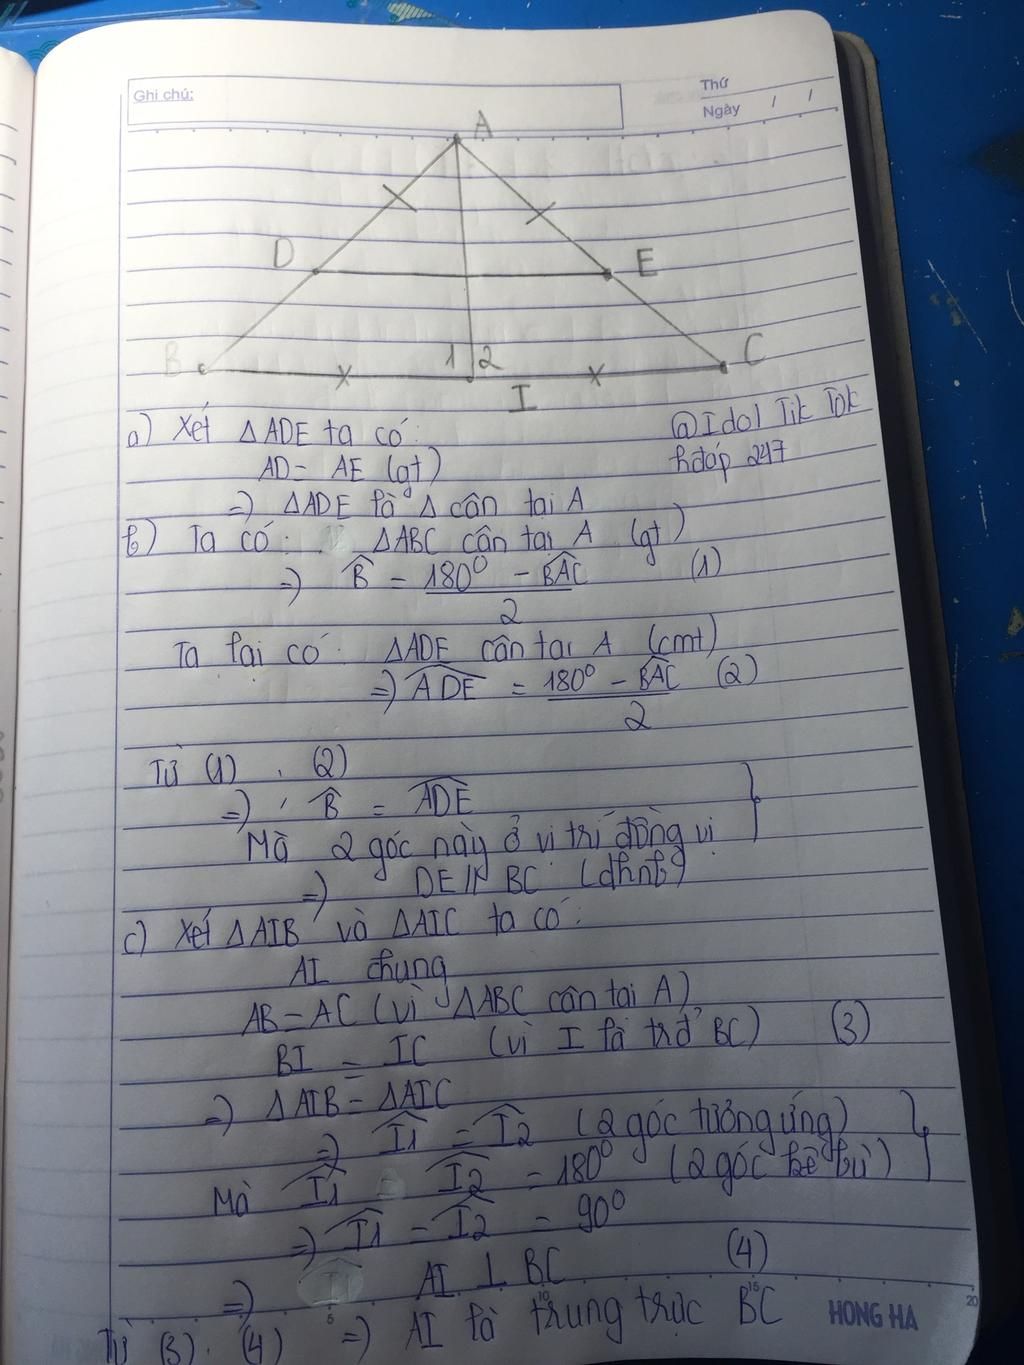 Ghi chú:
Thứ
Ngày / /
A
D
E
B
1 2
C
I
a) Xét △ADE ta có:
@Idol Tik Tok
AD = AE (gt)
hđáp 247
=) △ADE là △ cân tại A
b) Ta có: △ABC cân tại A (gt)
=) B̂ = 180⁰ - BAC̑ (1)
2
Ta lại có: △ADE cân tại A (cmt)
=) ADȆ = 180⁰ - BAC̑ (2)
2
Từ (1), (2)
=) B̂ = ADȆ
Mà 2 góc này ở vị trí đồng vị
=) DE // BC (dhnb)
c) Xét △AIB và △AIC ta có:
AI chung
AB = AC (vì △ABC cân tại A)
BI = IC (vì I là trđ BC) (3)
=) △AIB = △AIC
=) Î1 = Î2 (2 góc tương ứng)
Mà Î1 Î2 = 180⁰ (2 góc kề bù)
=) Î1 = Î2 = 90⁰
=) AI ⊥ BC (4)
Từ (3), (4) =) AI là trung trực BC
5 10 15 20
HONG HA